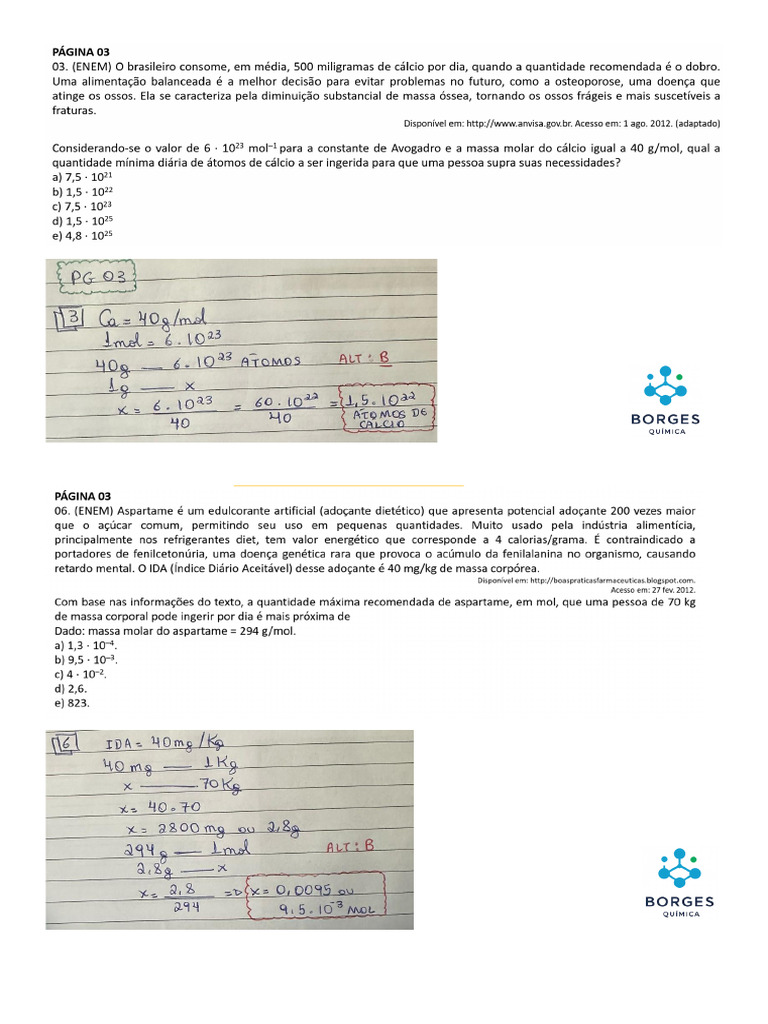 PÁGINA 03
03. (ENEM) O brasileiro consome, em média, 500 miligramas de cálcio por dia, quando a quantidade recomendada é o dobro.
Uma alimentação balanceada é a melhor decisão para evitar problemas no futuro, como a osteoporose, uma doença que
atinge os ossos. Ela se caracteriza pela diminuição substancial de massa óssea, tornando os ossos frágeis e mais suscetíveis a
fraturas.
Disponível em: http://www.anvisa.gov.br. Acesso em: 1 ago. 2012. (adaptado)
Considerando-se o valor de 6 · 10²³ mol⁻¹ para a constante de Avogadro e a massa molar do cálcio igual a 40 g/mol, qual a
quantidade mínima diária de átomos de cálcio a ser ingerida para que uma pessoa supra suas necessidades?
a) 7,5 · 10²¹
b) 1,5 · 10²²
c) 7,5 · 10²³
d) 1,5 · 10²⁵
e) 4,8 · 10²⁵
PG 03
3 Ca = 40g/mol
1mol = 6.10²³
40g — 6.10²³ ÁTOMOS ALT: B
1g — x
x = 6.10²³ / 40 = 60.10²² / 40 = 1,5.10²² ÁTOMOS DE CALCIO
BORGES
QUÍMICA
PÁGINA 03
06. (ENEM) Aspartame é um edulcorante artificial (adoçante dietético) que apresenta potencial adoçante 200 vezes maior
que o açúcar comum, permitindo seu uso em pequenas quantidades. Muito usado pela indústria alimentícia,
principalmente nos refrigerantes diet, tem valor energético que corresponde a 4 calorias/grama. É contraindicado a
portadores de fenilcetonúria, uma doença genética rara que provoca o acúmulo da fenilalanina no organismo, causando
retardo mental. O IDA (Índice Diário Aceitável) desse adoçante é 40 mg/kg de massa corpórea.
Disponível em: http://boaspraticasfarmaceuticas.blogspot.com.
Acesso em: 27 fev. 2012.
Com base nas informações do texto, a quantidade máxima recomendada de aspartame, em mol, que uma pessoa de 70 kg
de massa corporal pode ingerir por dia é mais próxima de
Dado: massa molar do aspartame = 294 g/mol.
a) 1,3 · 10⁻⁴.
b) 9,5 · 10⁻³.
c) 4 · 10⁻².
d) 2,6.
e) 823.
6 IDA = 40mg/Kg
40 mg — 1Kg
x — 70Kg
x = 40.70
x = 2800 mg ou 2,8g
294g — 1mol ALT: B
2,8g — x
x = 2,8 / 294 => x = 0,0095 ou
9,5.10⁻³ MOL
BORGES
QUÍMICA